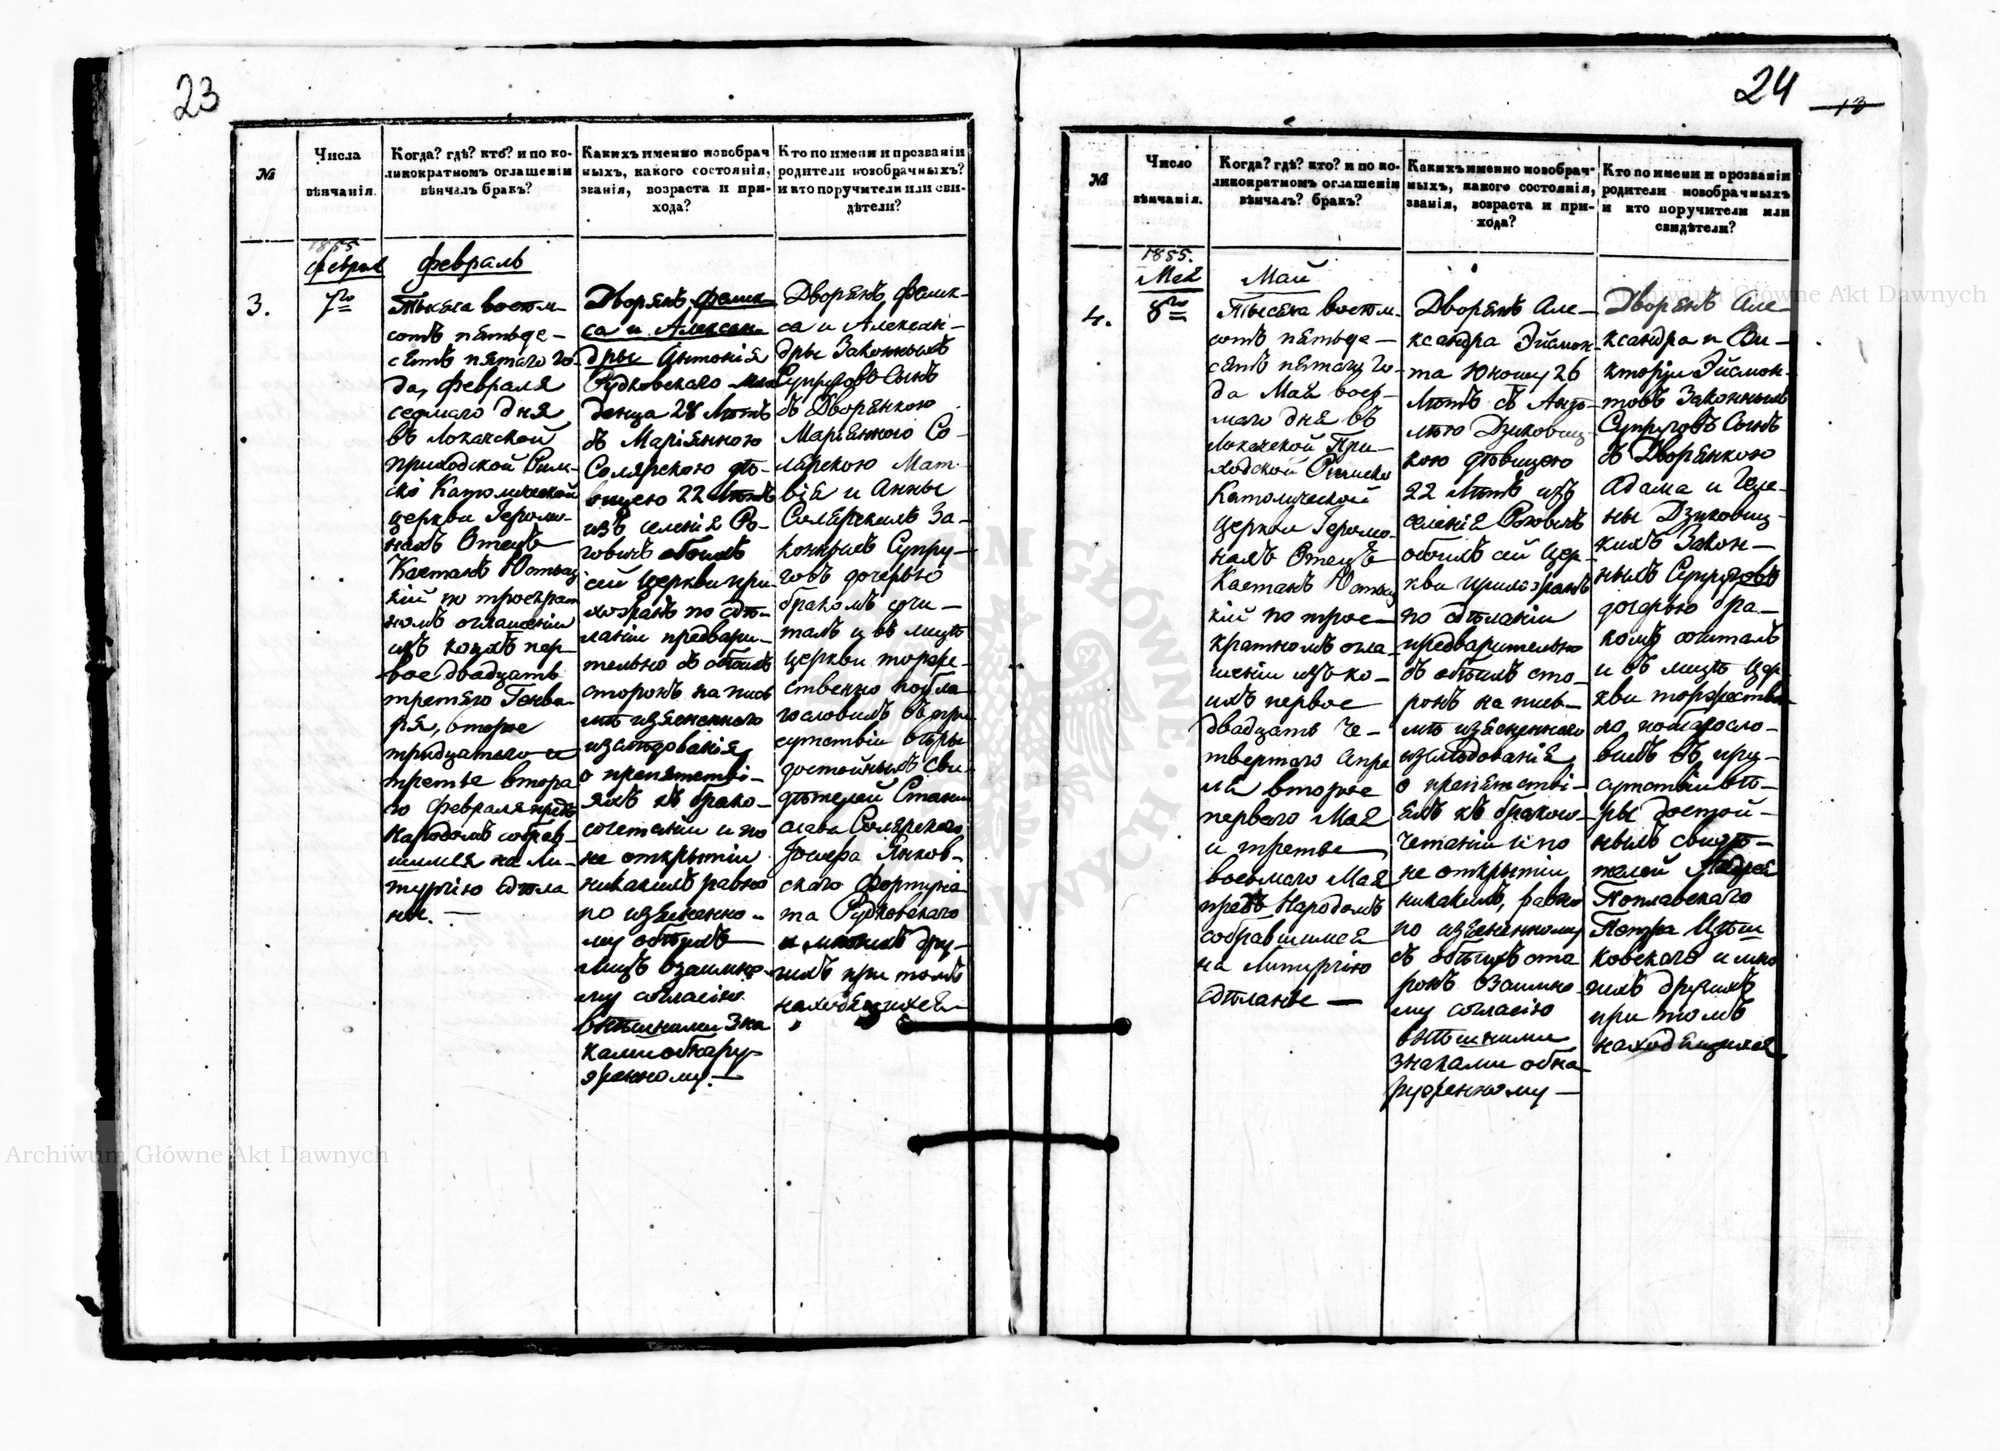 23
№
Числа
вѣнчанія.
Когда? гдѣ? кто? и по ко-
ликократномъ оглашеніи
вѣнчалъ бракъ?
Какихъ именно новобрач
ныхъ, какого состоянія,
званія, возраста и при-
хода?
Кто по имени и прозванію
родители новобрачныхъ?
и кто поручители или сви-
дѣтели?
1855
Февраля
3.
7го
Февраль
Тысяча восем-
сотъ пятьде-
сятъ пятаго го-
да, Февраля
седмаго дня
въ Локачской
приходской Рим-
ско Католической
церкви Іеромо-
нахъ Отецъ
Каетанъ
кій по троекрат
номъ оглашеніи
изъ коихъ пер-
вое двадцать
третяго Генва-
ря, второе
тридцатаго и
третье втора
го Февраля предъ
Народомъ собрав-
шимся на Ли-
тургію сдѣла
ны. —
Дворянъ Фелик-
са и Алексан-
дры Антонія
Рудковскаго мла
денца 28 Лѣтъ
съ Маріянною
Солярскою дѣ-
вицею 22 Лѣтъ
изъ селенія Ро-
говичъ обоихъ
сей Церкви при-
хожанъ по сдѣ-
ланіи предвари-
тельно съ обоихъ
сторонъ на пись
мѣ изъясненнаго
изслѣдованія
о препятстві-
яхъ къ брако-
сочетанію и по
не открытіи
никакихъ равно
по изъясненно-
му обѣихъ
Лицъ взаимно-
му согласію
внѣшними зна
ками обнару-
женному. —
Дворянъ Фелик-
са и Алексан-
дры Законныхъ
Супруговъ Сынъ
съ Дворянкою
Маріянною Со-
лярскою Мат-
вія и Анны
Солярскихъ За-
конныхъ Супру-
говъ дочерью
бракомъ соче-
талъ и въ лицѣ
церкви торже-
ственно побла-
гословилъ въ при
сутствіи вѣры
достойныхъ сви-
дѣтелей Стани
слава Солярскаго
Іосифа Янков-
скаго Фортуна-
та Рудковскаго
и многихъ дру-
гихъ при томъ
находящихся
24
13
№
Число
вѣнчанія.
Когда? гдѣ? кто? и по ко-
ликократномъ оглашеніи
вѣнчалъ? бракъ?
Какихъ именно новобрач-
ныхъ, какого состоянія,
званія, возраста и при-
хода?
Кто по имени и прозванію
родители новобрачныхъ
и кто поручители или
свидѣтели?
1855.
Мая
4.
8го
Май
Тысяча восем-
сотъ пятьде-
сятъ пятаго го-
да Мая вось-
маго дня въ
Локачской При-
ходской Римско
Католической
Церкви Іеромо-
нахъ Отецъ
Каетанъ
кій по трое-
кратномъ огла-
шеніи изъ ко-
ихъ первое
двадцать че-
твертаго Апре
ля второе
перваго Мая
и третье
восьмаго Мая
предъ Народомъ
собравшимся
на Литургію
сдѣланы —
Дворянъ Але-
ксандра Эйсмон-
та Юношу 26
Лѣтъ съ Анто-
лею Дзиковиц-
кою дѣвицею
22 Лѣтъ изъ
селенія Роговичъ
обоихъ сей Цер-
кви прихожанъ
по сдѣланіи
предварительно
съ обоихъ сто-
ронъ на пись-
мѣ изъясненнаго
изслѣдованія
о препятстві-
яхъ къ бракосо-
четанію и по
не открытіи
никакихъ, равно
по изъясненному
съ обѣихъ сто
ронъ взаимно-
му согласію
внѣшними
знаками обна-
руженному —
Дворянъ Але-
ксандра и Ви-
кторіи Эйсмон-
товъ Законныхъ
Супруговъ Сынъ
съ Дворянкою
Адама и Геле-
ны Дзиковиц-
кихъ Закон-
ныхъ Супруговъ
дочерью бра-
комъ сочиталъ
и въ лицѣ Цер-
кви торжествен
но поблагосло-
вилъ въ при-
сутствіи вѣ-
ры достой-
ныхъ свидѣ-
телей Андрея
Поплавскаго
Петра
ковскаго и мно
гихъ другихъ
при томъ
находящихся
Archiwum Główne Akt Dawnych
Archiwum Główne Akt Dawnych